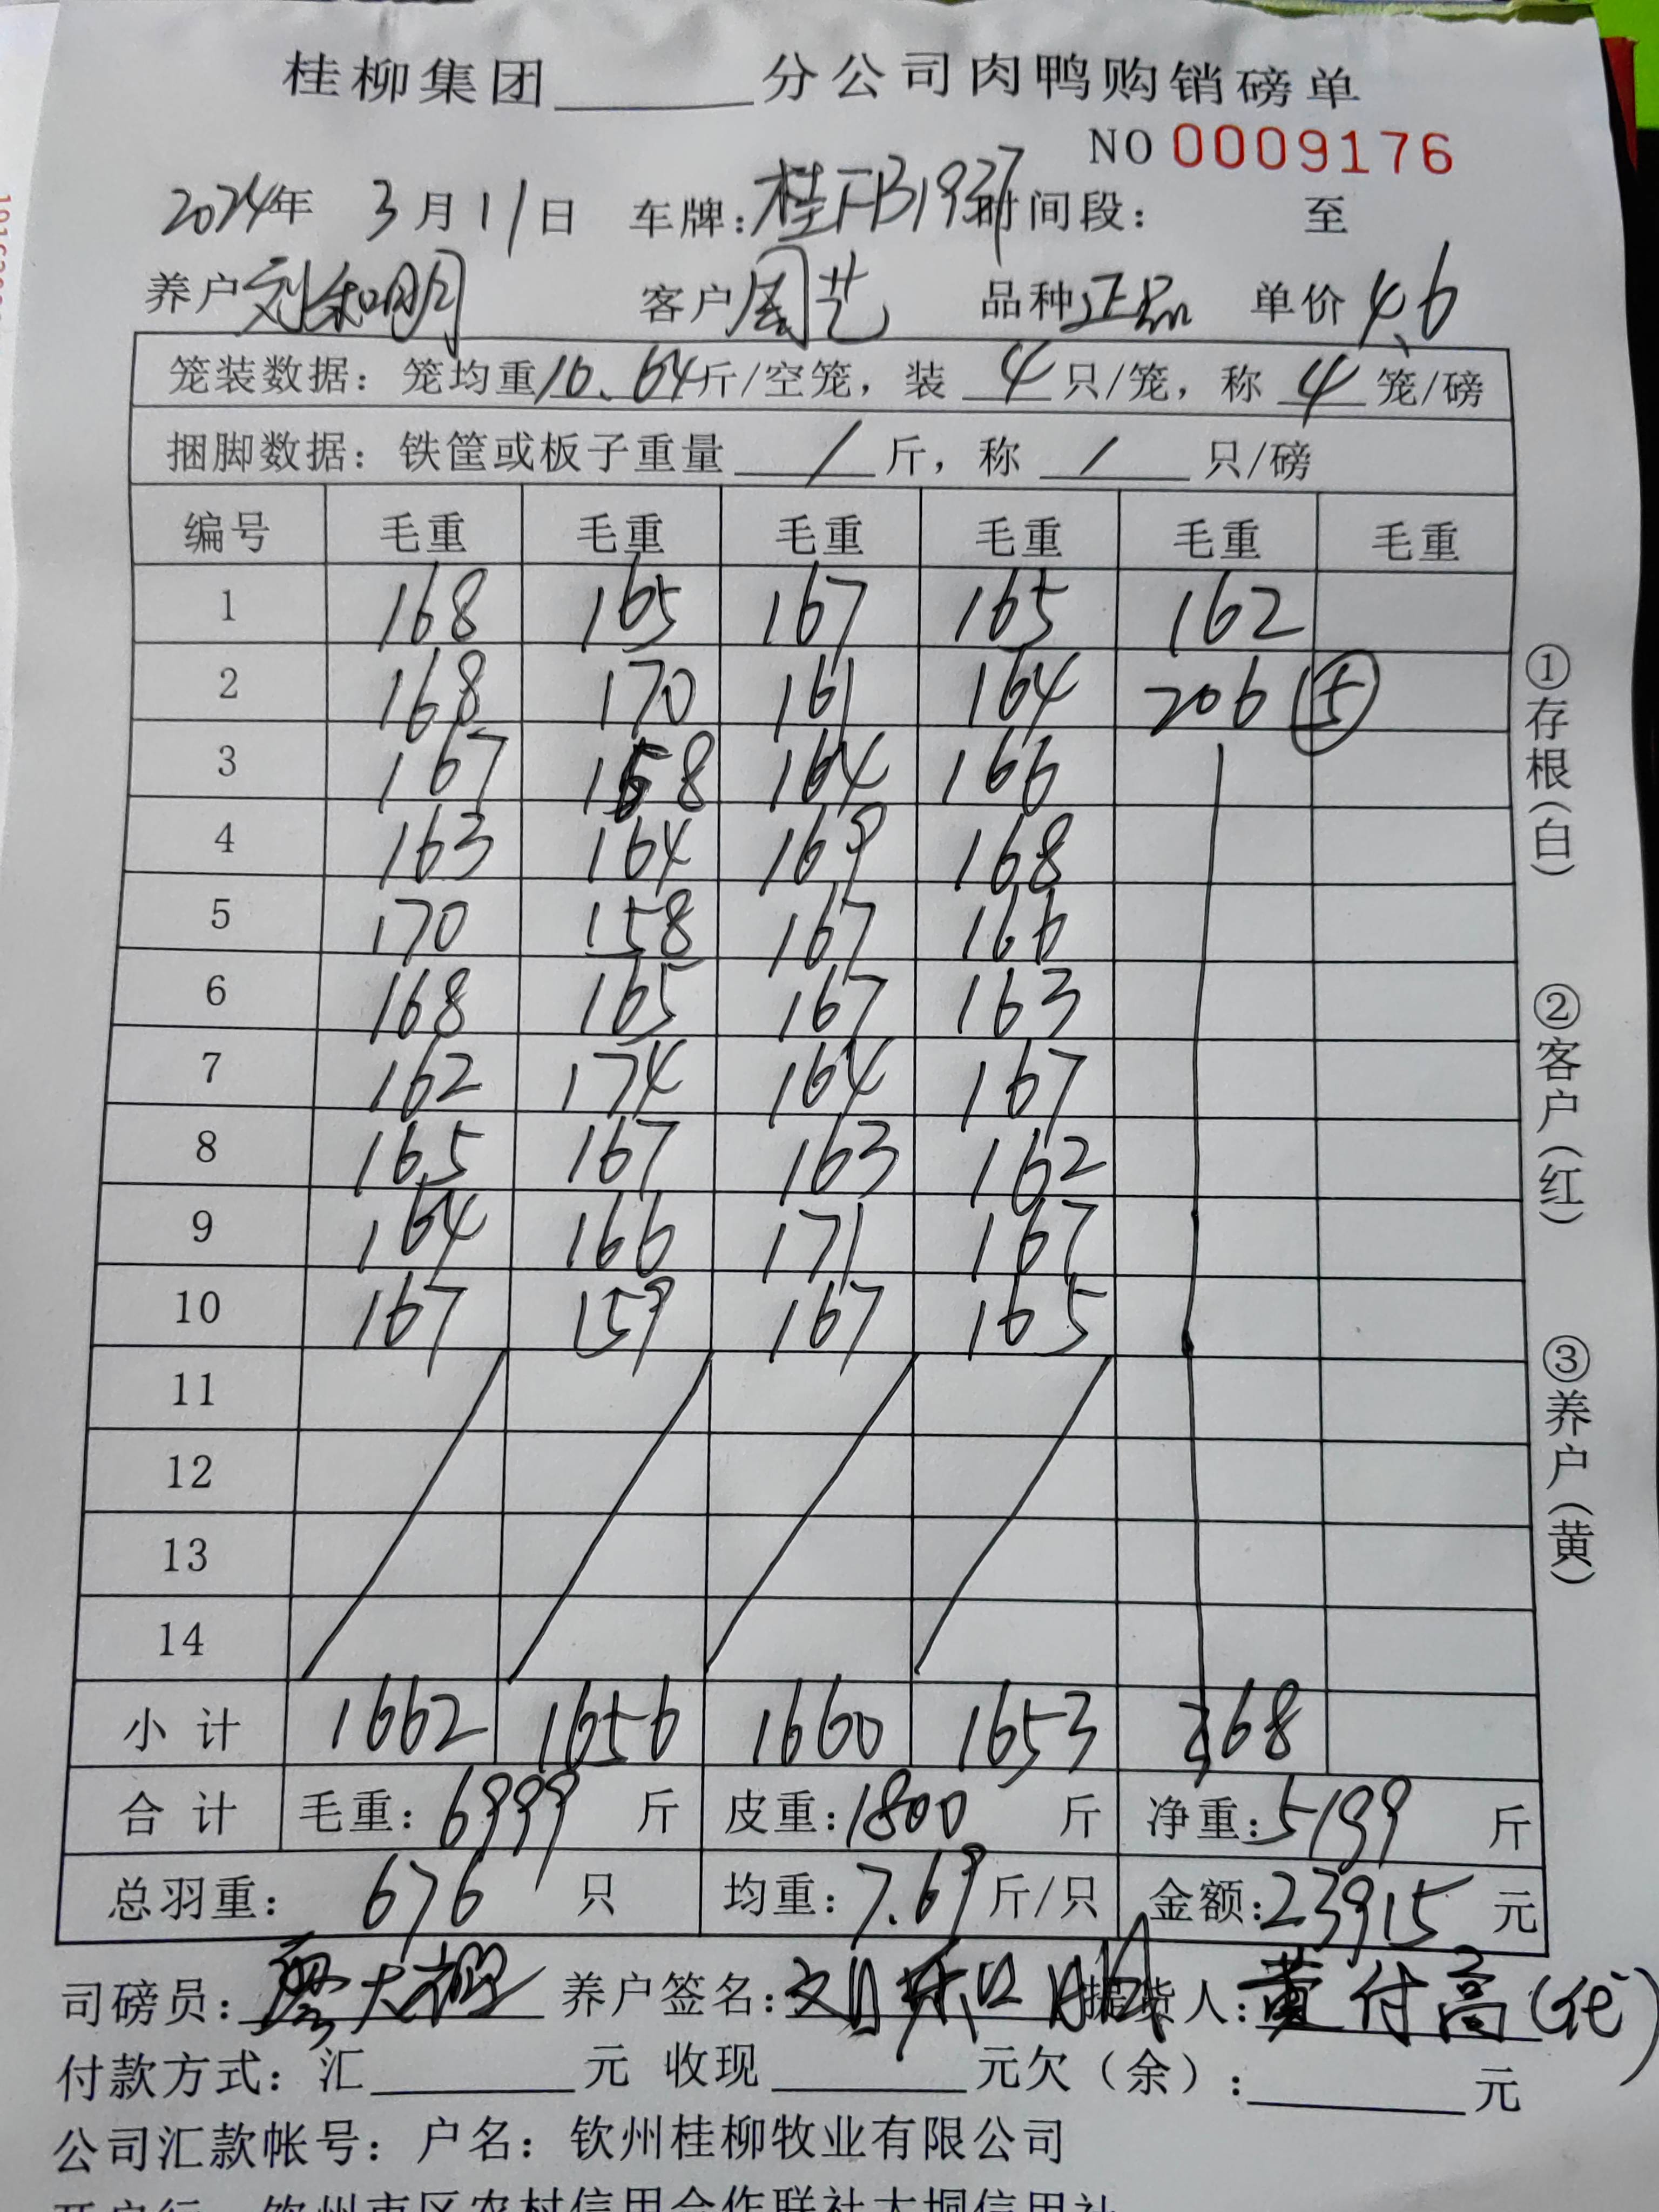 桂柳集团______分公司肉鸭购销磅单
NO 0009176
2024年 3月11日 车牌:桂FB1937 时间段: 至
养户 刘和明 客户 周艺 品种 正品 单价 4.6
笼装数据: 笼均重10.64斤/空笼, 装 4 只/笼, 称 4 笼/磅
捆脚数据: 铁筐或板子重量 / 斤, 称 / 只/磅
编号 毛重 毛重 毛重 毛重 毛重 毛重
1 168 165 167 165 162
2 168 170 161 164 206 ⑤
3 167 168 164 166
4 163 164 169 168
5 170 158 167 166
6 168 165 167 163
7 162 174 164 167
8 165 167 163 162
9 164 166 171 167
10 167 159 167 165
11
12
13
14
小计 1662 1656 1660 1653 368
合计 毛重: 6999 斤 皮重: 1800 斤 净重: 5199 斤
总羽重: 676 只 均重: 7.69 斤/只 金额: 23915 元
司磅员: 大 养户签名: 刘和明 提货人: 黄付高(代)
付款方式: 汇______元 收现______元欠(余):______元
公司汇款帐号: 户名: 钦州桂柳牧业有限公司
开户行: 钦州市区农村信用合作联社大垌信用社
①存根(白)
②客户(红)
③养户(黄)